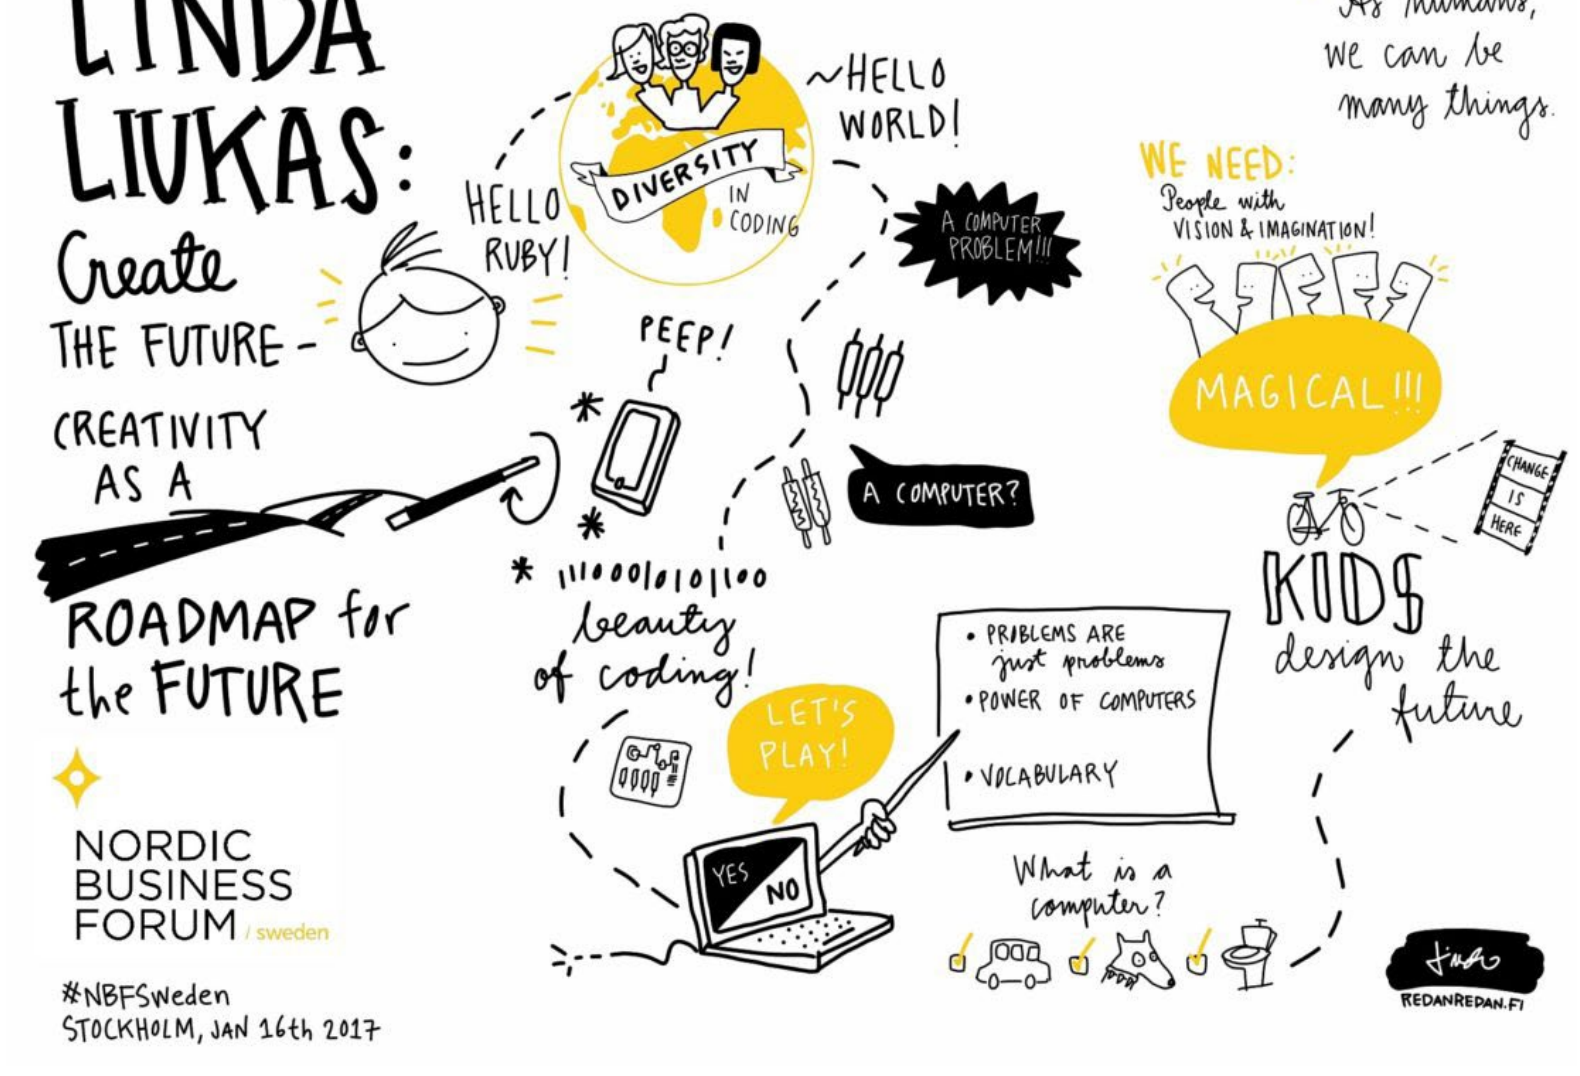 LINDA
LIUKAS:
Create
THE FUTURE -
CREATIVITY
AS A
ROADMAP for
the FUTURE
NORDIC
BUSINESS
FORUM / sweden
#NBFSweden
STOCKHOLM, JAN 16th 2017
HELLO
RUBY!
DIVERSITY
IN
CODING
~HELLO
WORLD!
A COMPUTER
PROBLEM!!!
PEEP!
A COMPUTER?
111000101011100
beauty
of coding!
LET'S
PLAY!
YES
NO
• PROBLEMS ARE
just problems
• POWER OF COMPUTERS
• VOCABULARY
What is a
computer?
As humans,
we can be
many things.
WE NEED:
People with
VISION & IMAGINATION!
MAGICAL!!!
CHANGE
IS
HERE
KIDS
design the
future
REDANREDAN.FI